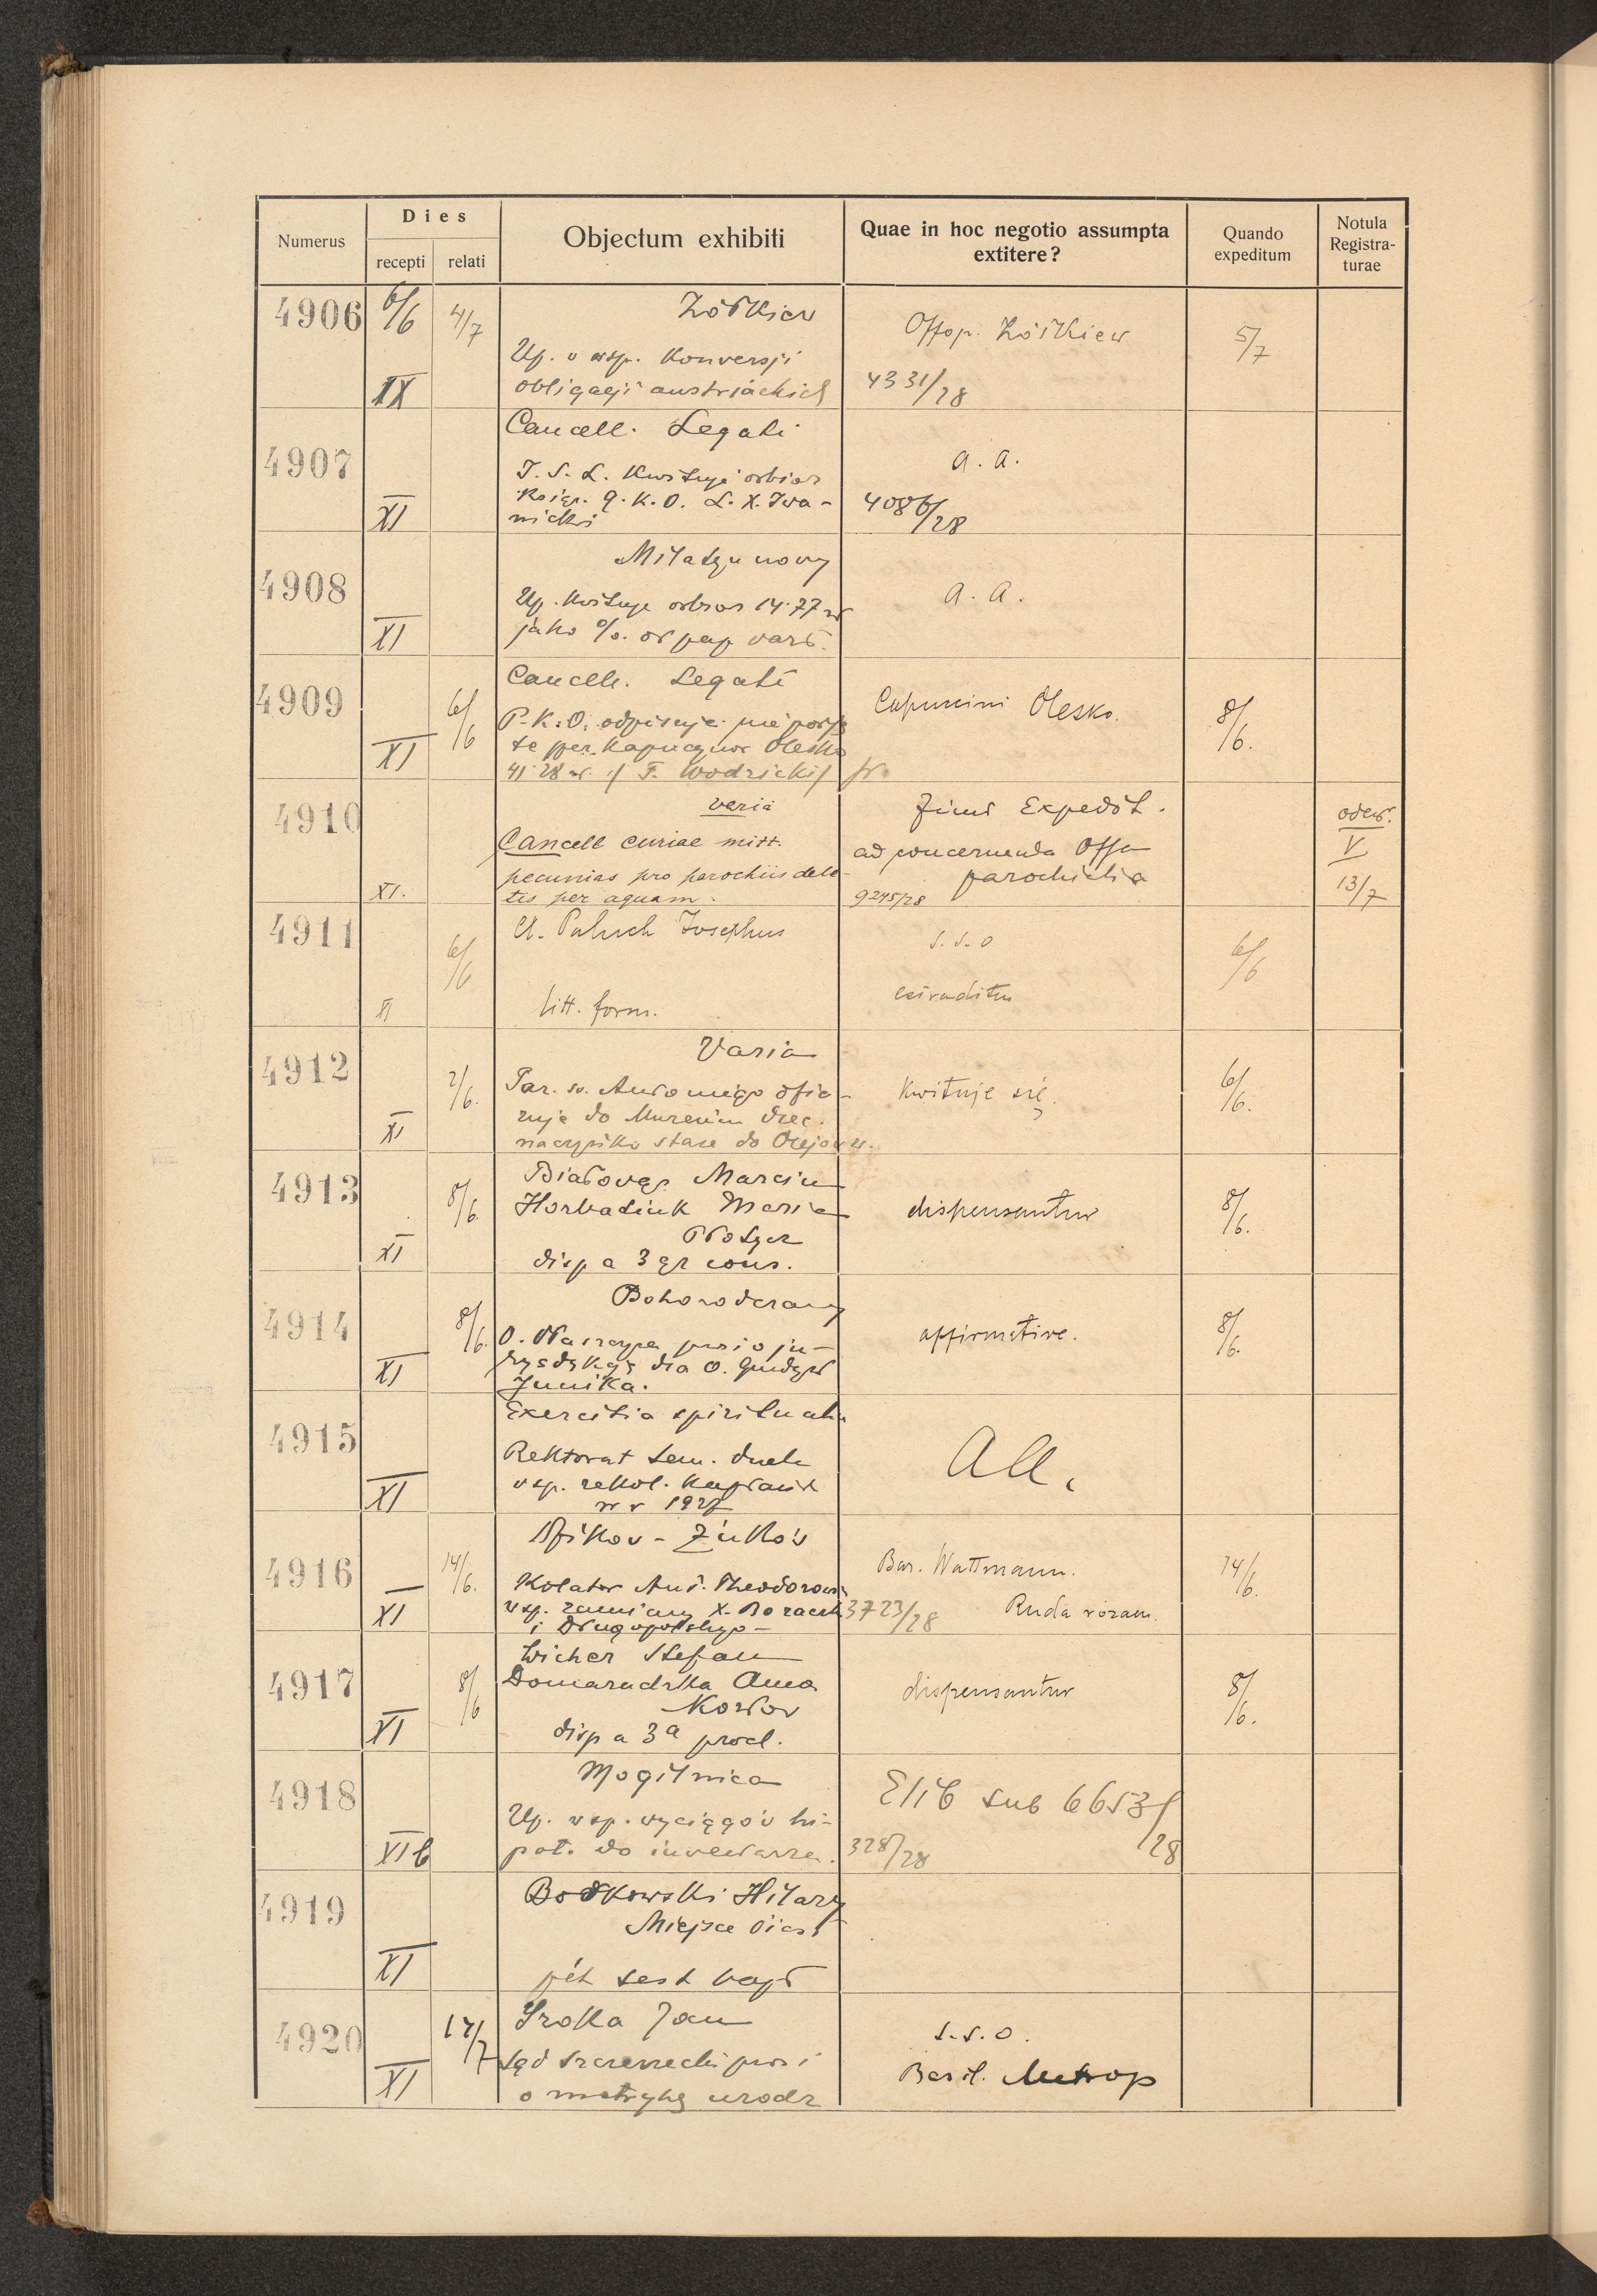 Numerus
Dies
recepti
relati
Objectum exhibiti
Quae in hoc negotio assumpta
extitere?
Quando
expeditum
Notula
Registra-
turae
4906 6/6 4/7 Żółkiew
Up. w wsp. konwersji
obligacji austriackich
IX
Offop. Żółkiew
4331/28
5/7
4907
XI
Cancell. Legati
T. S. L. kwituje odbiór
X. Iwa-
nicki
a. a.
4086/28
4908
XI
Milatyn nowy
Up. kwituje odbiór 14.77 zł
jako %. od pap wart.
a. a.
4909 6/6
XI
Cancell. Legati
P.K.O. odpisuje
te per. Kapucynów Olesko
41.28 zł. :/ F. Wodzicki/
Capucini Olesko.
8/6.
4910
XI.
varia
Cancell curiae mitt.
pecunias pro parochiis dele-
tis per aquam.
Expedit.
ad concernenda Offa
parochialia
9245/28
V
13/7
4911 6/6
XI
Cl. Paluch Josephus
litt. form.
s. s. o
extraditur
6/6
4912 2/6.
XI
Varia
Par. św. Antoniego ofia-
ruje do Muzeum
stare do
kwituje się.
6/6.
4913 8/6.
XI
Marcin
Horbatiuk Maria
disp a 3 gr cons.
dispensantur
8/6.
4914 8/6.
XI
Bohorodczany
O. prosi o ju-
rysdykcję dla O.
Junika.
affirmative.
8/6.
4915
XI
Exercitia spiritualia
Rektorat Sem. duch
wsp. rekol. kapłańsk
w r 1928
4916 14/6.
XI
Kolator Ant. Theodorowicz
wsp. zamiany X.
i Długopolskiego
Bar. Wattmann.
3723/28 Ruda rozan.
14/6.
4917 8/6
XI
Wicher Stefan
Domaradzka Anna
disp a 3a procl.
dispensantur
8/6.
4918
XI b
Mogilnica
Up. wsp. wyciągów hi-
pot. do inwentarza.
Elib sub 6653/28
328/28
4919
XI
Bodkowski Hilary
Miejsce Piast
test bapt
4920 17/7
XI
Sroka Jan
Sąd Szczerzecki prosi
o metrykę urodz
s. s. o.
Basil. Metrop